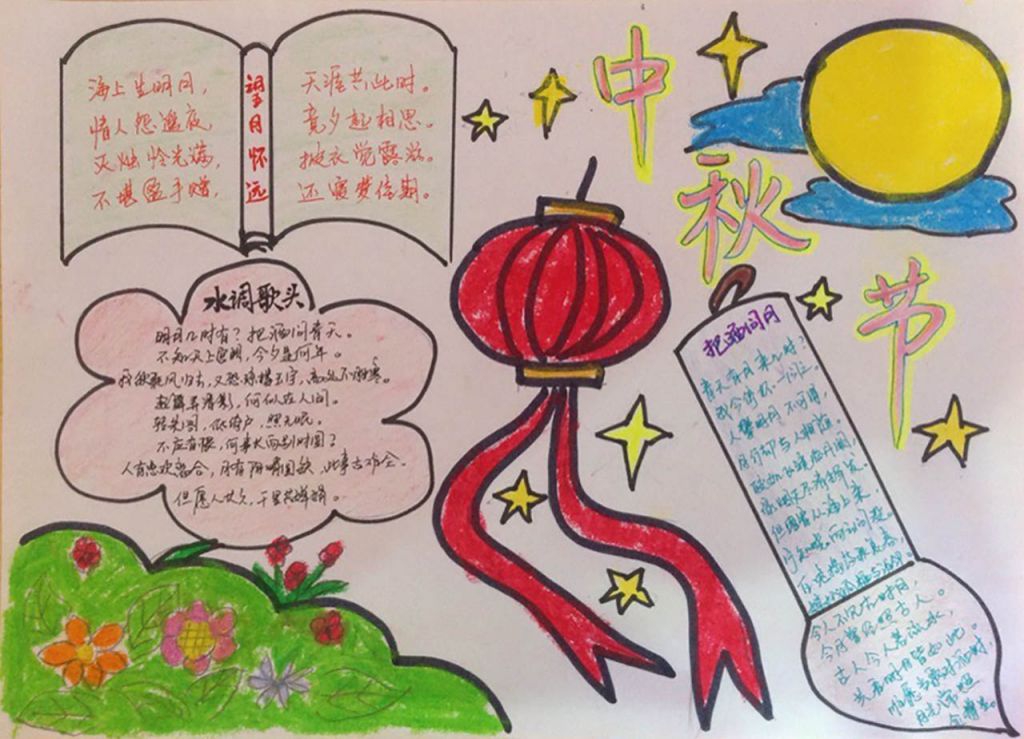 海上生明月,
情人怨遥夜,
灭烛怜光满,
不堪盈手赠,
望月怀远
天涯共此时。
竟夕起相思。
披衣觉露滋。
还寝梦佳期。
中秋节
水调歌头
明月几时有?把酒问青天。
不知天上宫阙,今夕是何年。
我欲乘风归去,又恐琼楼玉宇,高处不胜寒。
起舞弄清影,何似在人间。
转朱阁,低绮户,照无眠。
不应有恨,何事长向别时圆?
人有悲欢离合,月有阴晴圆缺,此事古难全。
但愿人长久,千里共婵娟。
把酒问月
青天有月来几时?
我今停杯一问之。
人攀明月不可得,
月行却与人相随。
皎如飞镜临丹阙,
绿烟灭尽清辉发。
但见宵从海上来,
宁知晓向云间没。
白兔捣药秋复春,
与谁邻
今人不见古时月,
今月曾经照古人。
古人今人若流水,
共看明月皆如此。
唯愿当歌对酒时,
月光长照
金樽里。